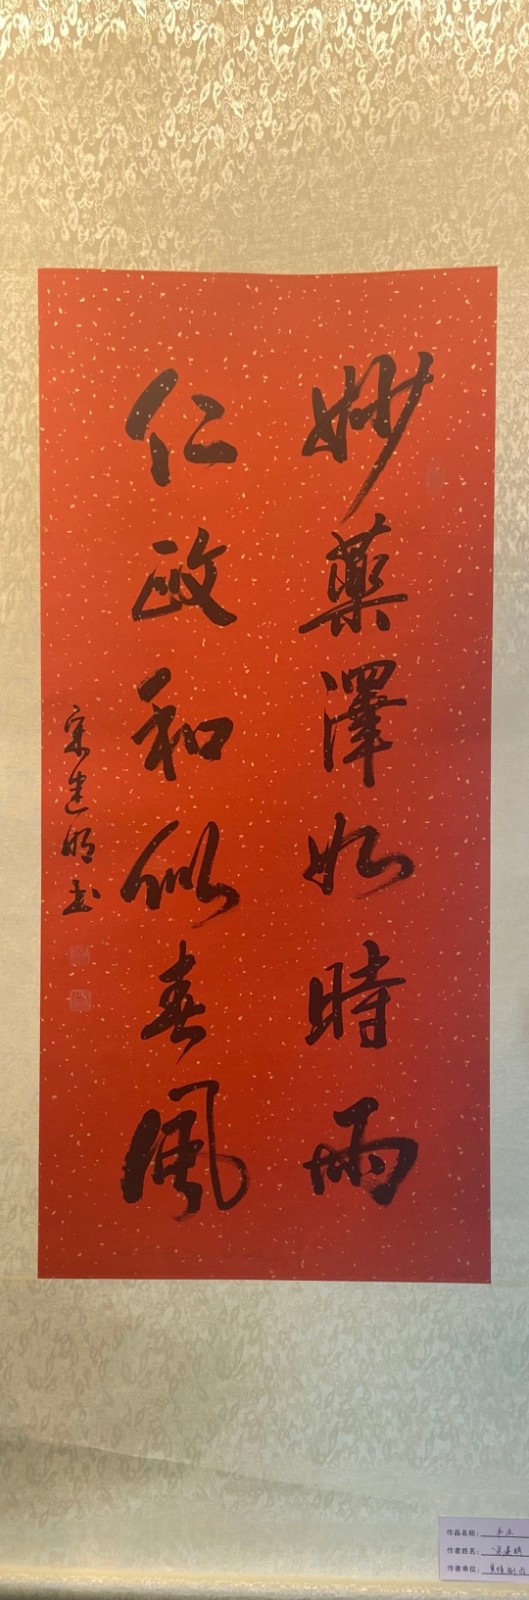 妙藥澤如時雨
仁政和似春風
宋建明書
作品名称：书法
作者姓名：宋建明
作者单位：